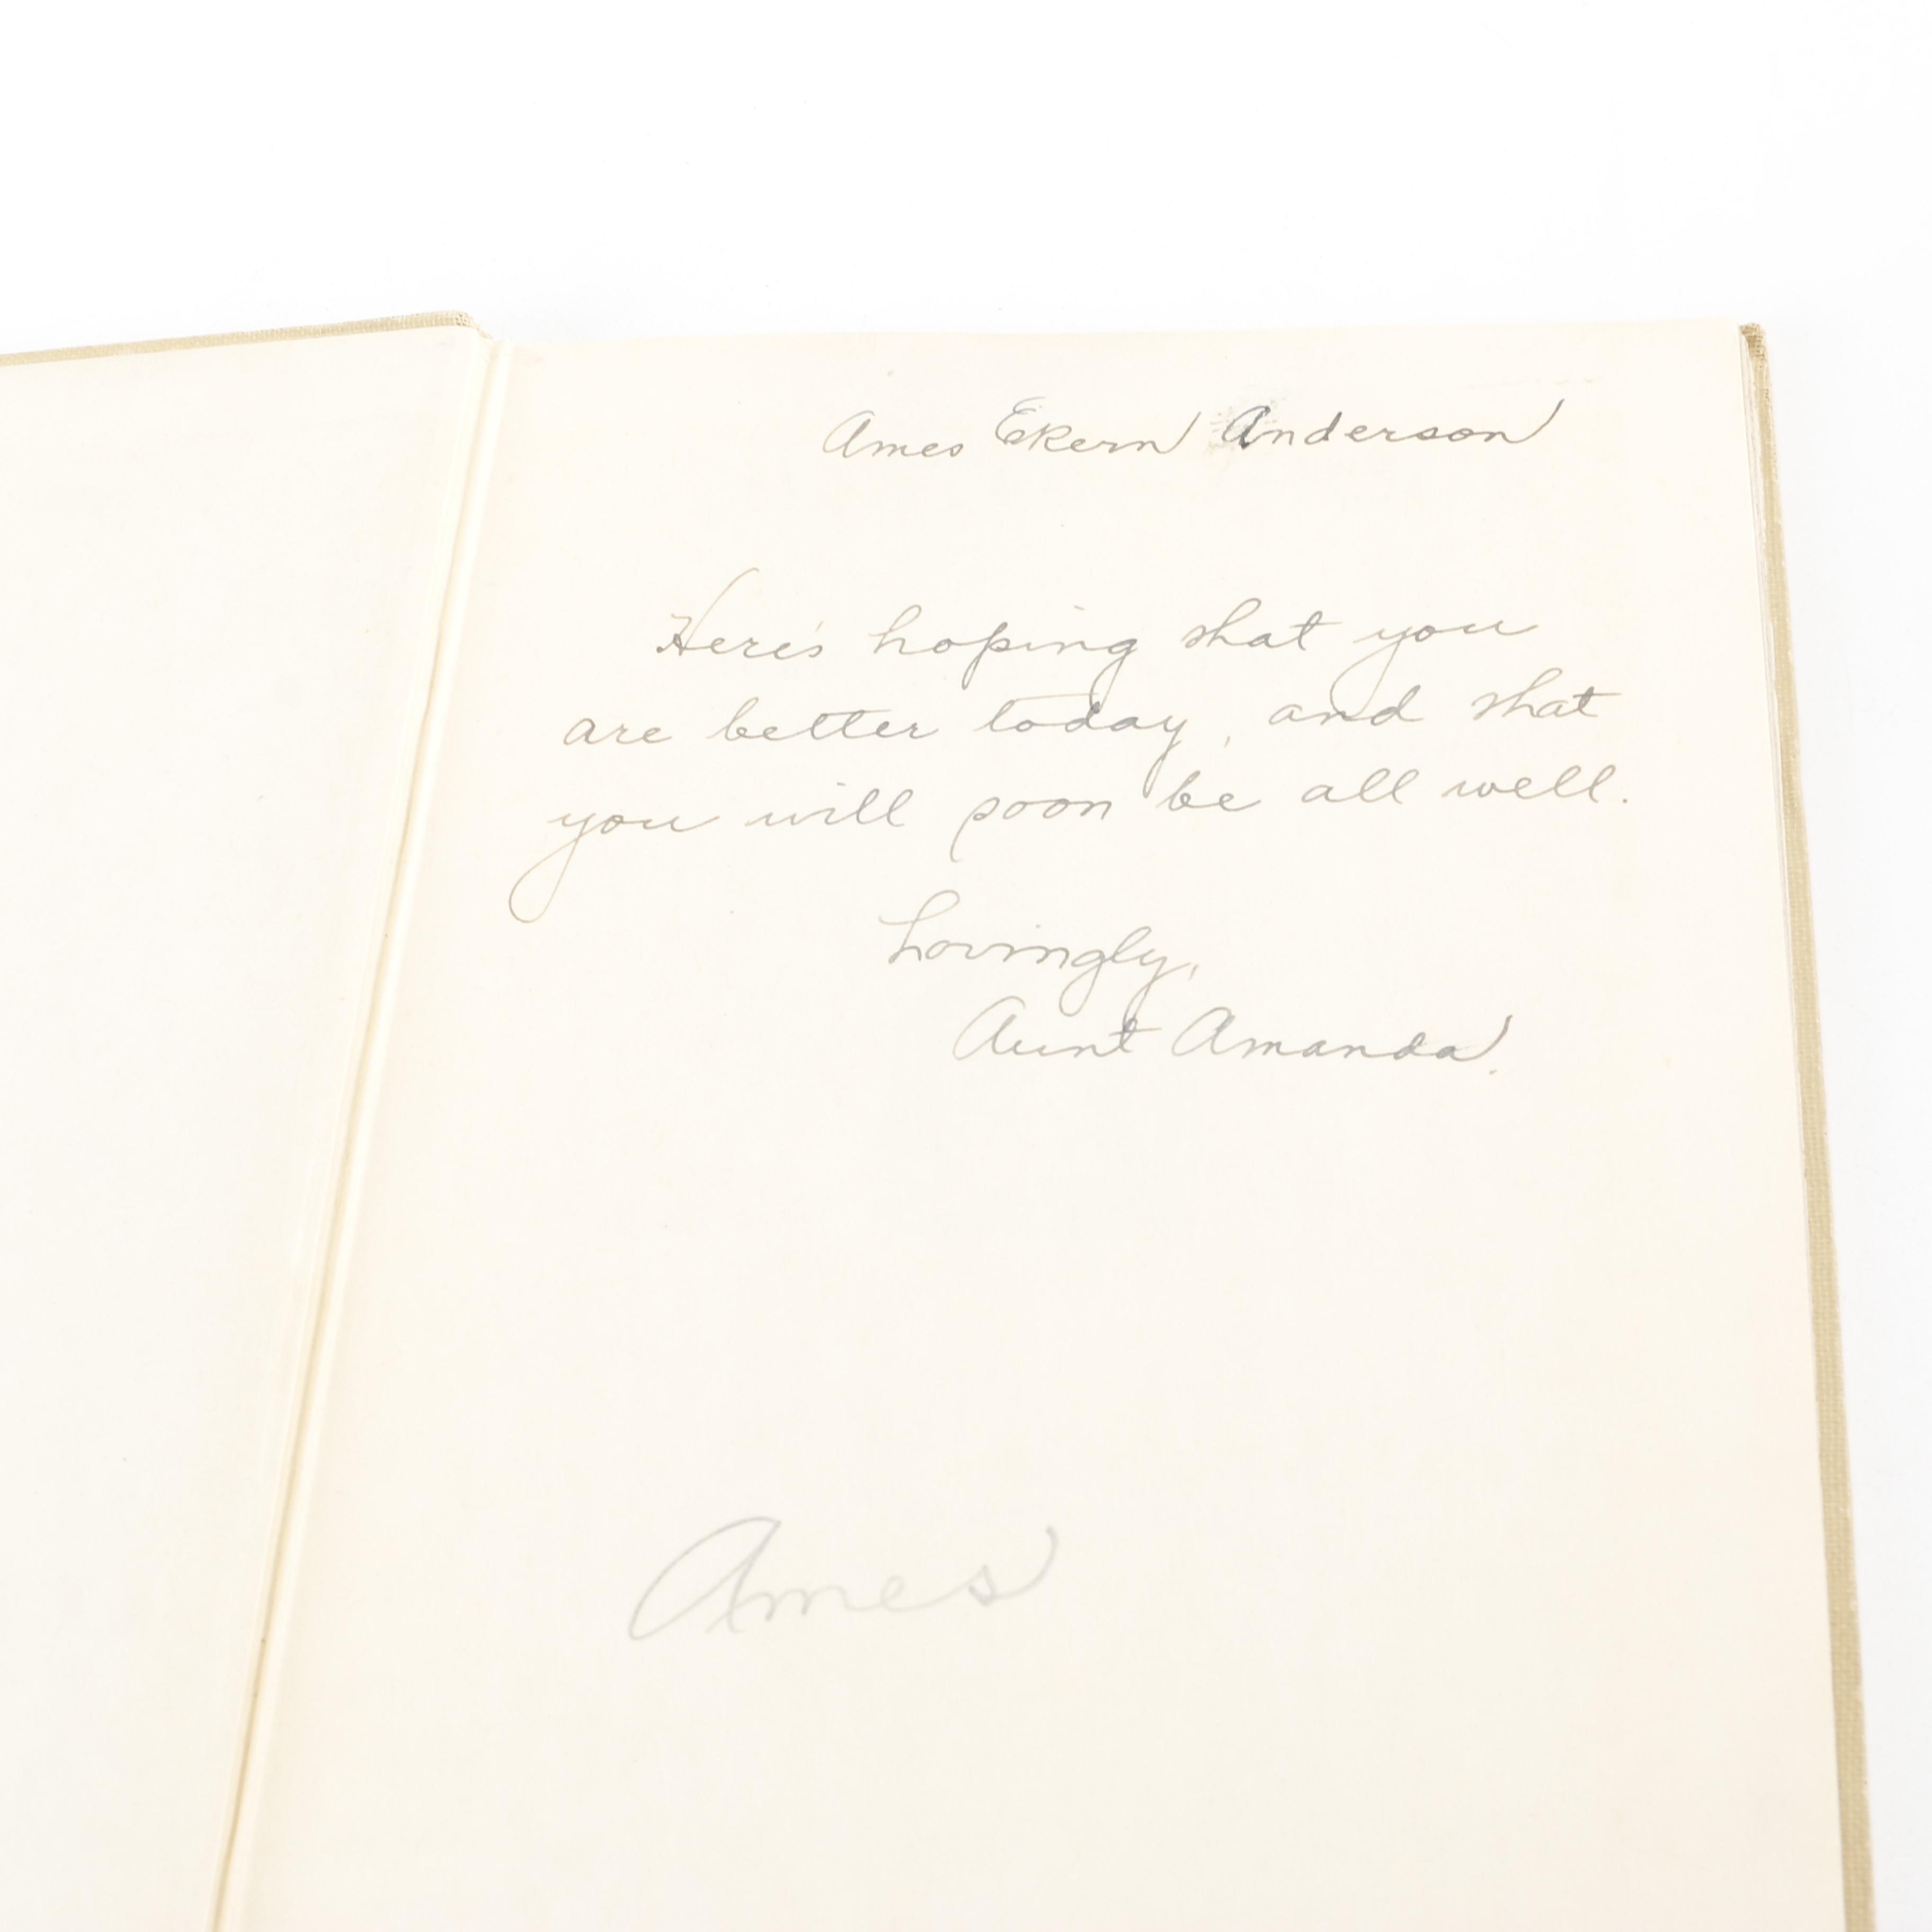 Ames Ekern Anderson
Here's hoping that you
are better today, and that
you will soon be all well.
Lovingly,
Aunt Amanda.
Ames